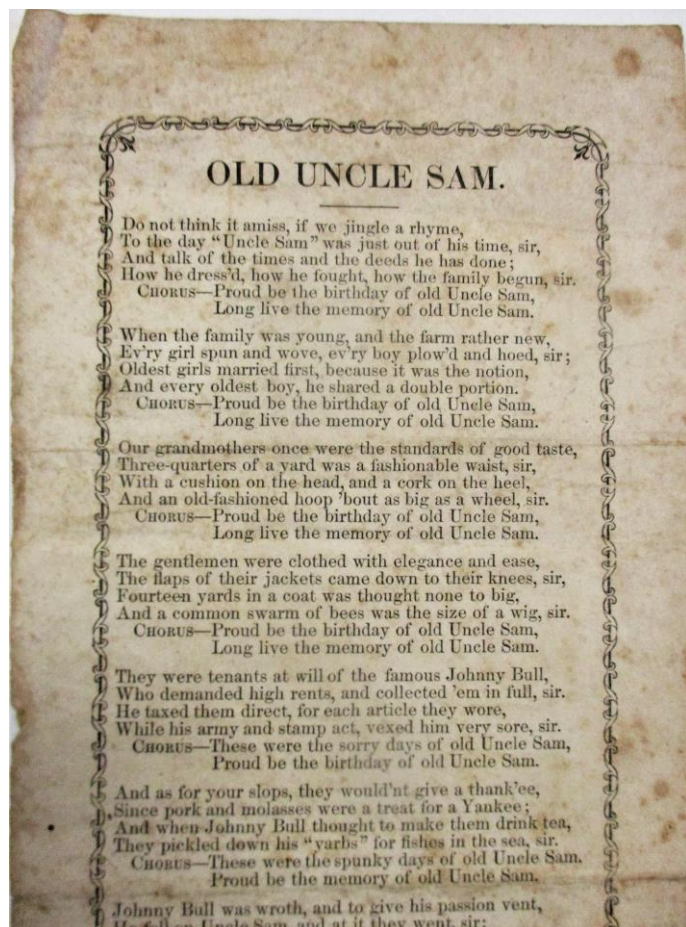 OLD UNCLE SAM.
Do not think it amiss, if we jingle a rhyme,
To the day "Uncle Sam" was just out of his time, sir,
And talk of the times and the deeds he has done;
How he dress'd, how he fought, how the family begun, sir.
CHORUS—Proud be the birthday of old Uncle Sam,
Long live the memory of old Uncle Sam.
When the family was young, and the farm rather new,
Ev'ry girl spun and wove, ev'ry boy plow'd and hoed, sir;
Oldest girls married first, because it was the notion,
And every oldest boy, he shared a double portion.
CHORUS—Proud be the birthday of old Uncle Sam,
Long live the memory of old Uncle Sam.
Our grandmothers once were the standards of good taste,
Three-quarters of a yard was a fashionable waist, sir,
With a cushion on the head, and a cork on the heel,
And an old-fashioned hoop 'bout as big as a wheel, sir.
CHORUS—Proud be the birthday of old Uncle Sam,
Long live the memory of old Uncle Sam.
The gentlemen were clothed with elegance and ease,
The flaps of their jackets came down to their knees, sir,
Fourteen yards in a coat was thought none to big,
And a common swarm of bees was the size of a wig, sir.
CHORUS—Proud be the birthday of old Uncle Sam,
Long live the memory of old Uncle Sam.
They were tenants at will of the famous Johnny Bull,
Who demanded high rents, and collected 'em in full, sir.
He taxed them direct, for each article they wore,
While his army and stamp act, vexed him very sore, sir.
CHORUS—These were the sorry days of old Uncle Sam,
Proud be the birthday of old Uncle Sam.
And as for your slops, they would'nt give a thank'ee,
Since pork and molasses were a treat for a Yankee;
And when Johnny Bull thought to make them drink tea,
They pickled down his "yarbs" for fishes in the sea, sir.
CHORUS—These were the spunky days of old Uncle Sam.
Proud be the memory of old Uncle Sam.
Johnny Bull was wroth, and to give his passion vent,
He fell on Uncle Sam, and at it they went, sir;